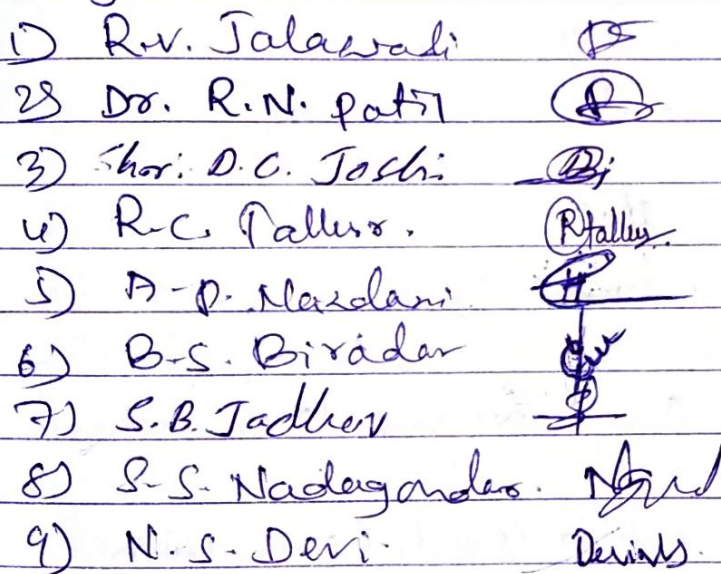 1) R.V. Jalawadi
2) Dr. R.N. patil
3) Shri. D.C. Joshi
4) R.C. Tallur. Rtallur
5) A.P. Nazdani
6) B.S. Biradar
7) S.B. Jadhav
8) S.S. Nadagoudar.
9) N.S. Devi.